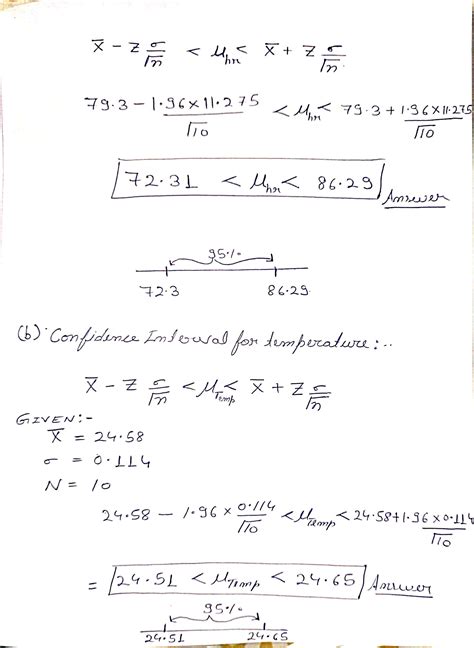 X̄ - Z σ/√n < μhr < X̄ + Z σ/√n
79.3 - 1.96×11.275/√10 < μhr < 79.3 + 1.96×11.275/√10
72.31 < μhr < 86.29 Answer
95%
72.3 86.29
(b) Confidence Interval for temperature:..
X̄ - Z σ/√n < μTemp < X̄ + Z σ/√n
GIVEN:-
X̄ = 24.58
σ = 0.114
N = 10
24.58 - 1.96 × 0.114/√10 < μTemp < 24.58 + 1.96 × 0.114/√10
= 24.51 < μTemp < 24.65 Answer
95%
24.51 24.65